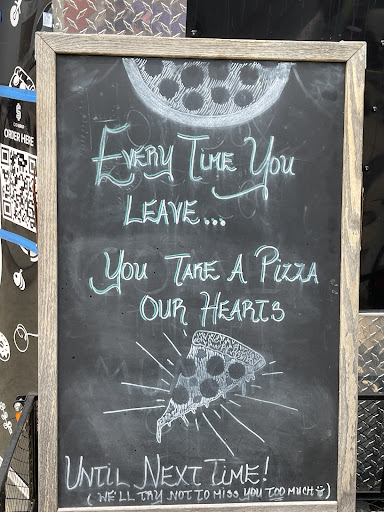 ORDER HERE
EVERY TIME YOU
LEAVE...
YOU TAKE A PIZZA
OUR HEARTS
UNTIL NEXT TIME!
(WE'LL TRY NOT TO MISS YOU TOO MUCH☺)